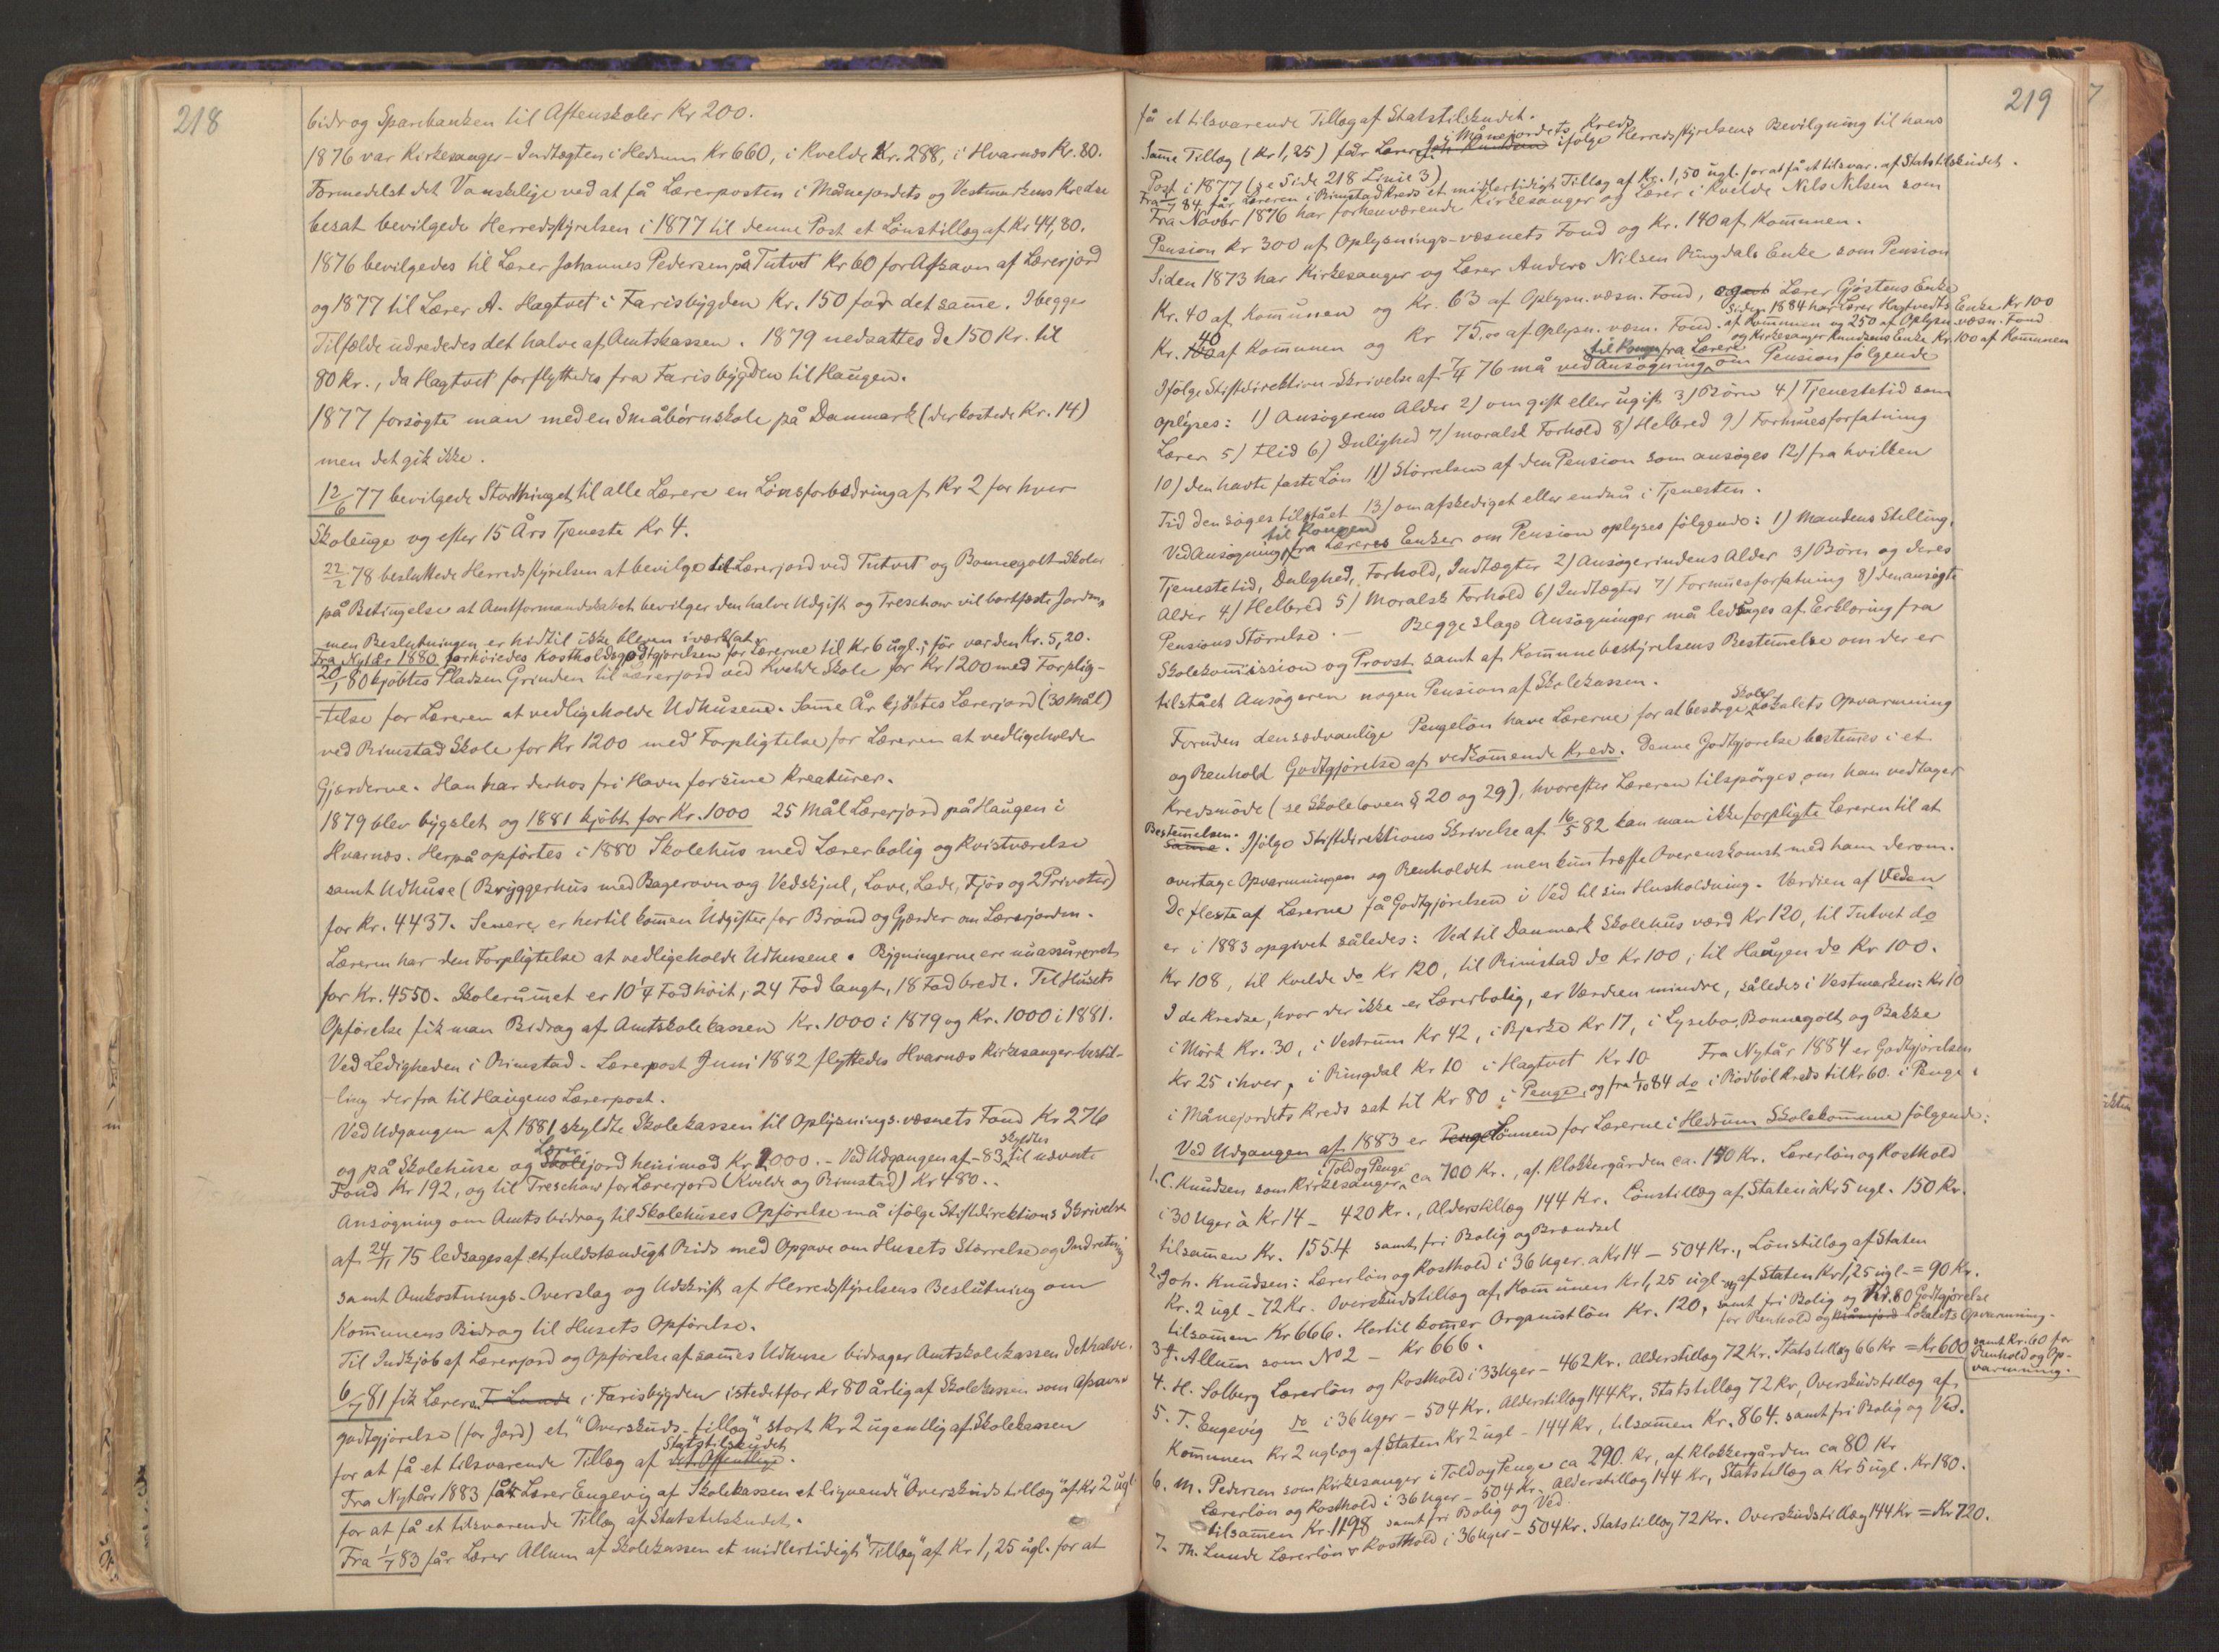 218
bidrog Sparebanken til Aftenskoler Kr 200.
1876 var Kirkesanger-Indtægten i Hedrum Kr 660, i Kvelde Kr. 288, i Hvarnæs Kr. 80.
Formedelst det Vanskelige ved at få Lærerposten i Månejordets og Vestmarkens Kredse
besat bevilgede Herredsstyrelsen i 1877 til denne Post et Lönstillæg af Kr 44,80.
1876 bevilgedes til Lærer Johannes Pedersen på Tutvet Kr 60 for Afsavn af Lærerjord
og 1877 til Lærer A. Hagtvet i Farisbygden Kr. 150 for det sam̄e. I begge
Tilfælde udrededes det halve af Amtskassen. 1879 nedsattes de 150 Kr. til
80 Kr., da Hagtvet forflyttedes fra Farisbygden til Haugen.
1877 forsögte man med en Småbörnskole på Danmark (der kostede Kr. 14)
men det gik ikke.
12/6 77 bevilgede Storthinget til alle Lærere en Lönsforbedring af Kr 2 for hver
Skoleuge og efter 15 Års Tjeneste Kr 4.
22/2 78 besluttede Herredsstyrelsen at bevilge til Lærerjord ved Tutvet og Bonnegolt Skoler
på Betingelse at Amtformandskabet bevilger den halve Udgift og Treschow vil bortfæste Jorden,
men Beslutningen er hidtil ikke bleven iværksat.
Fra Nytår 1880 forhöiedes Kostholdsgodtgjörelsen for Lærerne til Kr 6 ugl.; för var den Kr. 5,20.
20/1 80 kjöbtes Pladsen Grinden til Lærerjord ved Kvelde Skole for Kr 1200 med Forplig-
telse for Læreren at vedligeholde Udhusene. Sam̄e År kjöbtes Lærerjord (30 Mål)
ved Rimstad Skole for Kr 1200 med Forpligtelse for Læreren at vedligeholde
Gjærderne. Han har derhos fri Havn for sine Kreaturer.
1879 blev bygslet og 1881 kjöbt for Kr. 1000 25 Mål Lærerjord på Haugen i
Hvarnæs. Herpå opförtes i 1880 Skolehus med Lærerbolig og Kvistværelse
samt Udhuse (Bryggerhus med Bagerovn og Vedskjul, Lave, Lade, Fjös og 2 Privater)
for Kr. 4437. Senere er hertil kom̄en Udgifter for Brönd og Gjærder om Lærerjorden.
Læreren har den Forpligtelse at vedligeholde Udhusene. Bygningerne ere nu assureret
for Kr. 4550. Skolerum̄et er 10 1/4 Fod höit, 24 Fod langt, 18 Fod bredt. Til Husets
Opförelse fik man Bidrag af Amtskolekassen Kr. 1000 i 1879 og Kr. 1000 i 1881.
Ved Ledigheden i Rimstad-Lærerpost Juni 1882 flyttedes Hvarnæs Kirkesanger-bestil-
ling derfra til Haugens Lærerpost.
Ved Udgangen af 1881 skyldte Skolekassen til Oplysnings-væsnets Fond Kr 276
og på Skolehuse og Skole Lærer-jord henimod Kr 2000. - Ved Udgangen af - 83 skyldtes til nævnte
Fond Kr 192, og til Treschow for Lærerjord (Kvelde og Rimstad) Kr 480..
Ansögning om Amtsbidrag til Skolehuses Opförelse må ifölge Stiftdirektions Skrivelse
af 24/1 75 ledsages af et fuldstændigt Rids med Opgave om Husets Störrelse og Indretning
samt Omkostnings-Overslag og Udskrift af Herredsstyrelsens Beslutning om
Kom̄unens Bidrag til Husets Opförelse.
Til Indkjöb af Lærerjord og Opförelse af sam̄es Udhuse bidrager Amtskolekassen Dethalve.
6/7 81 fik Læreren T. Lunde i Farisbygden istedetfor Kr 80 årlig af Skolekassen som Afsavns
godtgjörelse (for Jord) et "Overskuds-tillæg" stort Kr 2 ugentlig af Skolekassen
for at få et tilsvarende Tillæg af det Offentlige Statstilskudet.
Fra Nytår 1883 får Lærer Engevig af Skolekassen et lignende "Overskuds tillæg" af Kr 2 ugl.
for at få et tilsvarende Tillæg af Statstilskudet.
Fra 1/7 83 får Lærer Allum af Skolekassen et midlertidigt "Tillæg" af Kr 1,25 ugl. for at
219
få et tilsvarende Tillæg af Statstilskudet.
Sam̄e Tillæg (Kr 1,25) får Lærer Joh Knudsen i Månejordets Kreds ifölge Herredsstyrelsens Bevilgning til hans
Post i 1877 (se Side 218 Linie 3)
Fra 1/7 84 får Læreren i Rimstad Kreds et midlertidigt Tillæg af Kr. 1,50 ugl. for at få et tilsvar. af Statstilskudet.
Fra Novbr 1876 har forhenværende Kirkesanger og Lærer i Kvelde Nils Nilsen som
Pension Kr 300 af Oplysnings-væsnets Fond og Kr. 140 af Kom̄unen.
Siden 1873 har Kirkesanger og Lærer Anders Nilsen Ringdals Enke som Pension
Kr. 40 af Kom̄unen og Kr. 63 af Oplysn. væsn. Fond, Lærer Gjöstens Enke
Kr. 40 af Kom̄unen og Kr 75,00 af Oplysn. væsn. Fond. Siden 1884 har Lærer Hagtvedts Enke Kr 100
af Kom̄unen og 250 af Oplysn. væsn. Fond
og Kirkesanger Knudsens Enke Kr. 100 af Kom̄unen
Ifölge Stiftdirektion-Skrivelse af 7/4 76 må ved Ansögning til Kongen fra Lærere om Pension fölgende
oplyses: 1) Ansögerens Alder 2) om gift eller ugift 3) Börn 4) Tjenestetid som
Lærer 5) Flid 6) Duelighed 7) moralsk Forhold 8) Helbred 9) Formuesforfatning
10) den havte faste Lön 11) Störrelsen af den Pension som ansöges 12) fra hvilken
Tid den söges tilstået 13) om afskediget eller endnu i Tjenesten.
Ved Ansögning til Kongen fra Læreres Enker om Pension oplyses fölgende: 1) Mandens Stilling,
Tjenestetid, Dulighed, Forhold, Indtægter 2) Ansögerindens Alder 3) Börn og deres
Alder 4) Helbred 5) Moralsk Forhold 6) Indtægter 7) Formuesforfatning 8) den ansögte
Pensions Störrelse. - Begge Slags Ansögninger må ledsages af Erklæring fra
Skolekom̄ission og Provst samt af Kom̄unebestyrelsens Bestem̄else om der er
tilstået Ansögeren nogen Pension af Skolekassen.
Foruden den sædvanlige Pengelön have Lærerne for at besörge Skole-Lokalets Opvarmning
og Renhold Godtgjörelse af vedkom̄ende Kreds. Denne Godtgjörelse bestem̄es i et
Kredsmöde (se Skoleloven § 20 og 29), hvorefter Læreren tilspörges, om han vedtager
Sam̄e Bestem̄elsen. Ifölge Stiftdirektions Skrivelse af 16/5 82 kan man ikke forpligte Læreren til at
overtage Opvarmningen og Renholdet men kun træffe Overenskomst med ham derom.
De fleste af Lærerne få Godtgjörelsen i Ved til sin Husholdning. Værdien af Veden
er i 1883 opgivet således: Ved til Danmark Skolehus værd Kr 120, til Tutvet do
Kr 108, til Kvelde do Kr 120, til Rimstad do Kr 100, til Haugen do Kr 100.
I de Kredse, hvor der ikke er Lærerbolig, er Værdien mindre, således i Vestmarken: Kr 10
i Mörk Kr. 30, i Vestrum Kr 42, i Bjerke Kr 17, i Lysebo, Bonnegolt og Bakke
Kr 25 i hver, i Ringdal Kr 10 i Hagtvet Kr 10 Fra Nytår 1884 er Godtgjörelsen
i Månejordets Kreds sat til Kr 80 i Penge, og fra 1/10 84 do i Rödböl Kreds til Kr 60. i Penge.
Ved Udgangen af 1883 er Penge Lönnen for Lærerne i Hedrum Skolekom̄une fölgende:
1. C. Knudsen som Kirkesanger i Told og Penge ca 700 Kr., af Klokkergården ca. 140 Kr. Lærerlön og Kosthold
i 30 Uger à Kr 14 - 420 Kr., Alderstillæg 144 Kr. Lönstillæg af Staten à Kr 5 ugl. 150 Kr.
tilsam̄en Kr. 1554 samt fri Bolig og Brændsel
2. Joh. Knudsen: Lærerlön og Kosthold i 36 Uger a Kr 14 - 504 Kr., Lönstillæg af Staten
Kr. 2 ugl - 72 Kr. Overskudstillæg af Kom̄unen Kr 1,25 ugl og af Staten Kr 1,25 ugl. = 90 Kr.
tilsam̄en Kr 666. Hertil kom̄er Organistlön Kr. 120, samt fri Bolig og Kr. 80 Godtgjörelse
for Renhold og Lokalets Opvarmning.
3 J. Allum som No 2 - Kr 666.
4. H. Solberg Lærerlön og Kosthold i 33 Uger - 462 Kr. Alderstillæg 72 Kr. Statstillæg 66 Kr = Kr 600 samt Kr. 60 for
Renhold og Op-
varmning.
5. T. Engevig do i 36 Uger - 504 Kr. Alderstillæg 144 Kr. Statstillæg 72 Kr, Overskudstillæg af
Kom̄unen Kr 2 ugl og af Staten Kr 2 ugl - 144 Kr, tilsam̄en Kr. 864. samt fri Bolig og Ved.
6. M. Pedersen som Kirkesanger i Told og Penge ca 290 Kr, af Klokkergården ca 80 Kr
Lærerlön og Kosthold i 36 Uger - 504 Kr. Alderstillæg 144 Kr, Statstillæg a Kr 5 ugl. Kr 180.
tilsam̄en Kr. 1198 samt fri Bolig og Ved.
7. Th. Lunde Lærerlön & Kosthold i 36 Uger - 504 Kr. Statstillæg 72 Kr. Overskudstillæg 144 Kr = Kr 720.